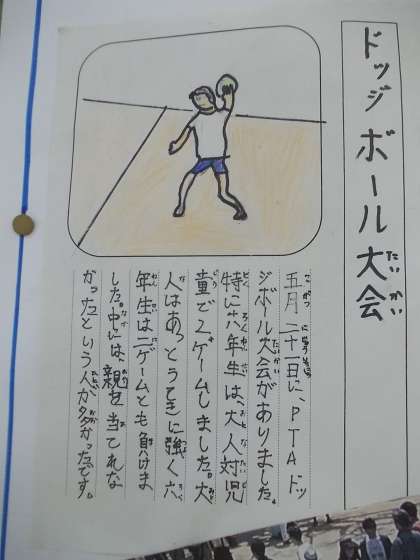 ドッジボール大会
五月二十一日に、PTAドッ
ジボール大会がありました。
特に六年生は、大人対児
童で2ゲームしました。大
人はあっとうてきに強く六
年生は二ゲームとも負けま
した。中には、親を当てれな
かったという人が多かったです。